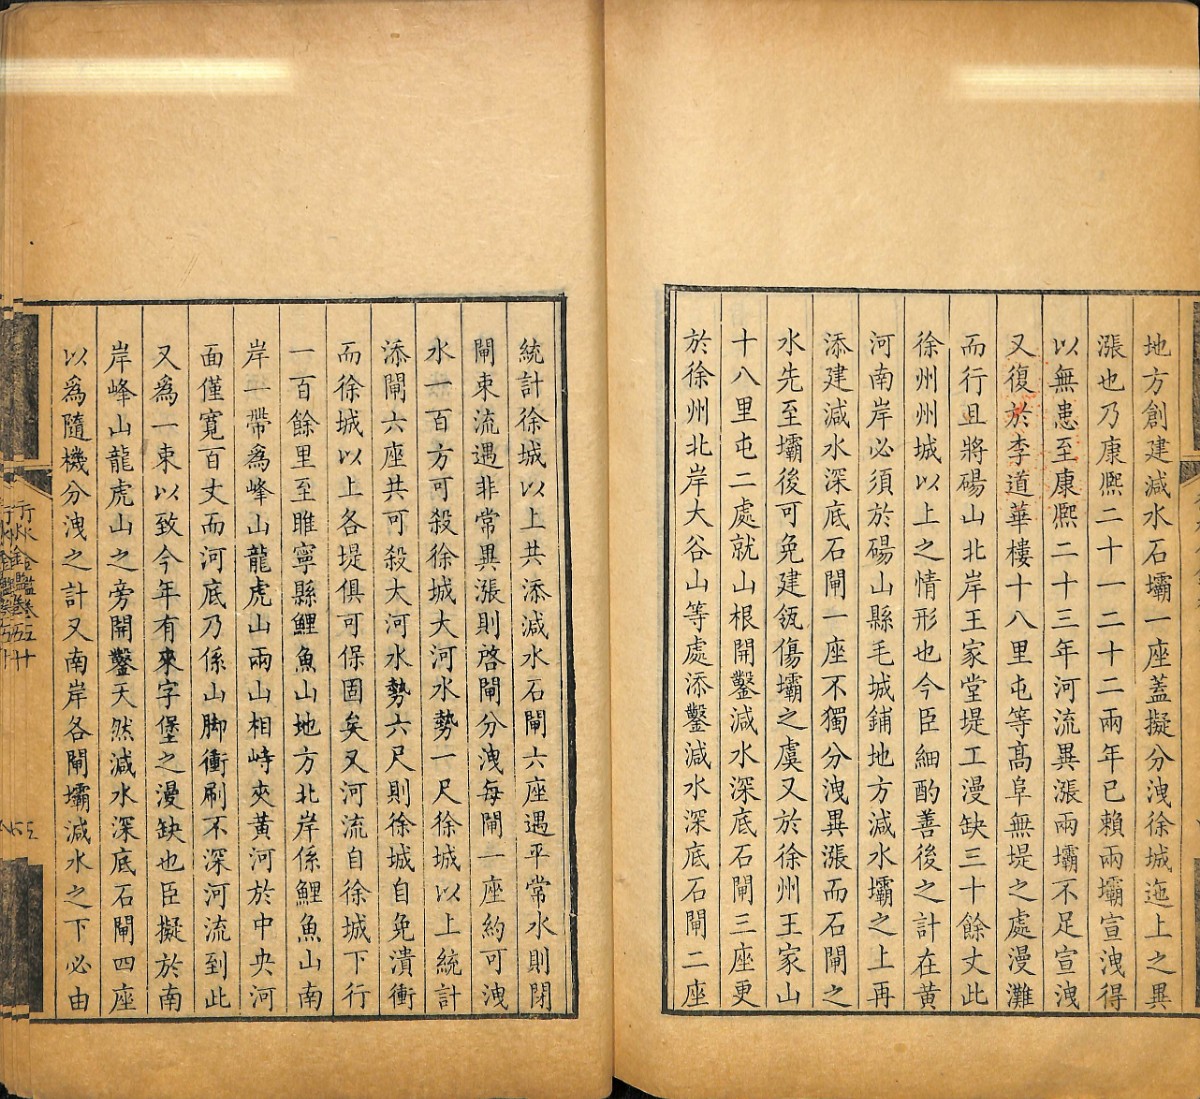 地方創建減水石壩一座蓋擬分洩徐城迤上之異
漲也乃康熈二十一二十二兩年已賴兩壩宣洩得
以無患至康熈二十三年河流異漲兩壩不足宣洩
又復於李道華樓十八里屯等髙阜無堤之處漫灘
而行且將碭山北岸王家堂堤工漫缺三十餘丈此
徐州州城以上之情形也今臣細酌善後之計在黃
河南岸必須於碭山縣毛城鋪地方減水壩之上再
添建減水深底石閘一座不獨分洩異漲而石閘之
水先至壩後可免建瓴傷壩之虞又於徐州王家山
十八里屯二處就山根開鑿減水深底石閘三座更
於徐州北岸大谷山等處添鑿減水深底石閘二座
統計徐城以上共添減水石閘六座遇平常水則閉
閘束流遇非常異漲則啓閘分洩每閘一座約可洩
水一百方可殺徐城大河水勢一尺徐城以上統計
添閘六座共可殺大河水勢六尺則徐城自免潰衝
而徐城以上各堤俱可保固矣又河流自徐城下行
一百餘里至睢寧縣鯉魚山地方北岸係鯉魚山南
岸一帶為峰山龍虎山兩山相峙夾黃河於中央河
面僅寛百丈而河底乃係山脚衝刷不深河流到此
又為一束以致今年有來字堡之漫缺也臣擬於南
岸峰山龍虎山之旁開鑿天然減水深底石閘四座
以為隨機分洩之計又南岸各閘壩減水之下必由
行水金鑑卷五十